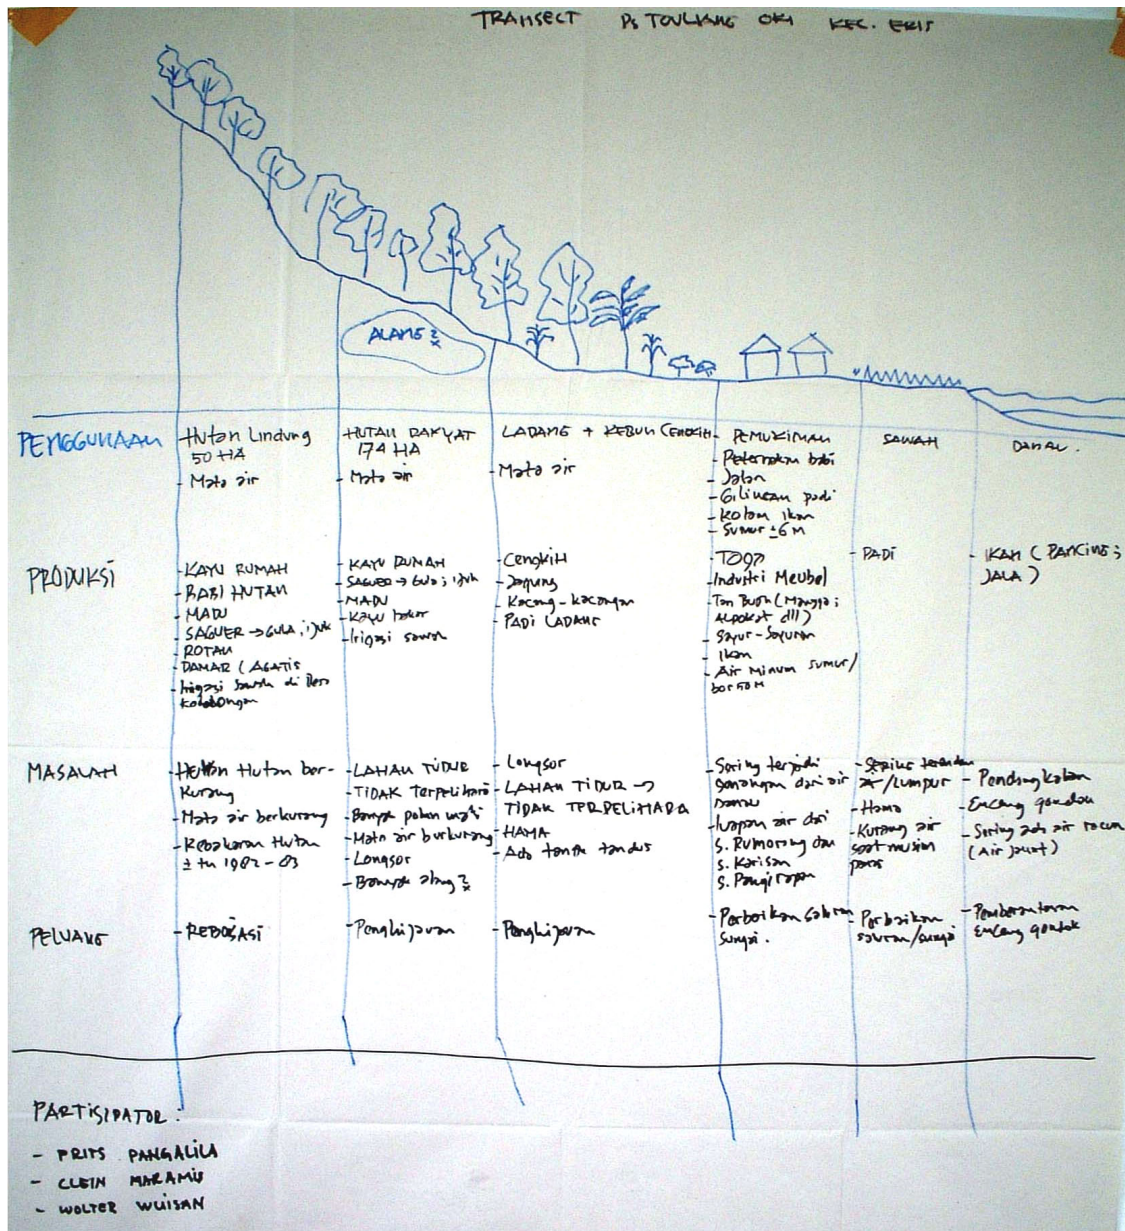 TRANSECT Ds TOULIANG OKI KEC. ERIS
ALANG 2x
PENGGUNAAN
Hutan Lindung
50 HA
- Mata air
HUTAN RAKYAT
174 HA
- Mata air
LADANG + KEBUN CENGKIH
- Mata air
PEMUKIMAN
- Peternakan babi
- Jalan
- Gilingan padi
- Kolam Ikan
- Sumur ± 6 M
SAWAH
DANAU.
PRODUKSI
- KAYU RUMAH
- BABI HUTAN
- MADU
- SAGUER → GULA; ijuk
- ROTAN
- DAMAR (AGATIS
- Irigasi Sawah di Desa
- KAYU RUMAH
- SAGUER → Gula; ijuk
- MADU
- Kayu bakar
- Irigasi sawah
- Cengkih
- Jagung
- Kacang-kacangan
- PADI LADANG
- TOGA
- Industri Meubel
- Tan Buah (Mangga;
Alpokat dll)
- Sayur-Sayuran
- Ikan
- Air Minum sumur/
bor 50 M
- PADI
- IKAN (PANCING;
JALA)
MASALAH
- Hutan ber-
kurang
- Mata air berkurang
- Kebakaran Hutan
± th 1982-83
- LAHAN TIDUR
- TIDAK Terpelihara
- Banyak pohon mati
- Mata air berkurang
- Longsor
- Banyak alang 2x
- Longsor
- LAHAN TIDUR →
TIDAK TERPELIHARA
- HAMA
- Ada tanah tandus
- Sering terjadi
genangan dari air
danau
- luapan air dari
S. Rumorong dan
S. Karisan
S. Pangirapan
- Sering terendam
air/lumpur
- Hama
- Kurang air
saat musim
panas
- Pendangkalan
- Enceng gondok
- Sering ada air racun
PELUANG
- REBOSASI
- Penghijauan
- Penghijauan
- Perbaikan saluran
sungai.
- Perbaikan
saluran/sungai
- Pemberantasan
Enceng gondok
PARTISIPATOR:
- FRITS PANGALILA
- CLEIN MARAMIS
- WOLTER WUISAN